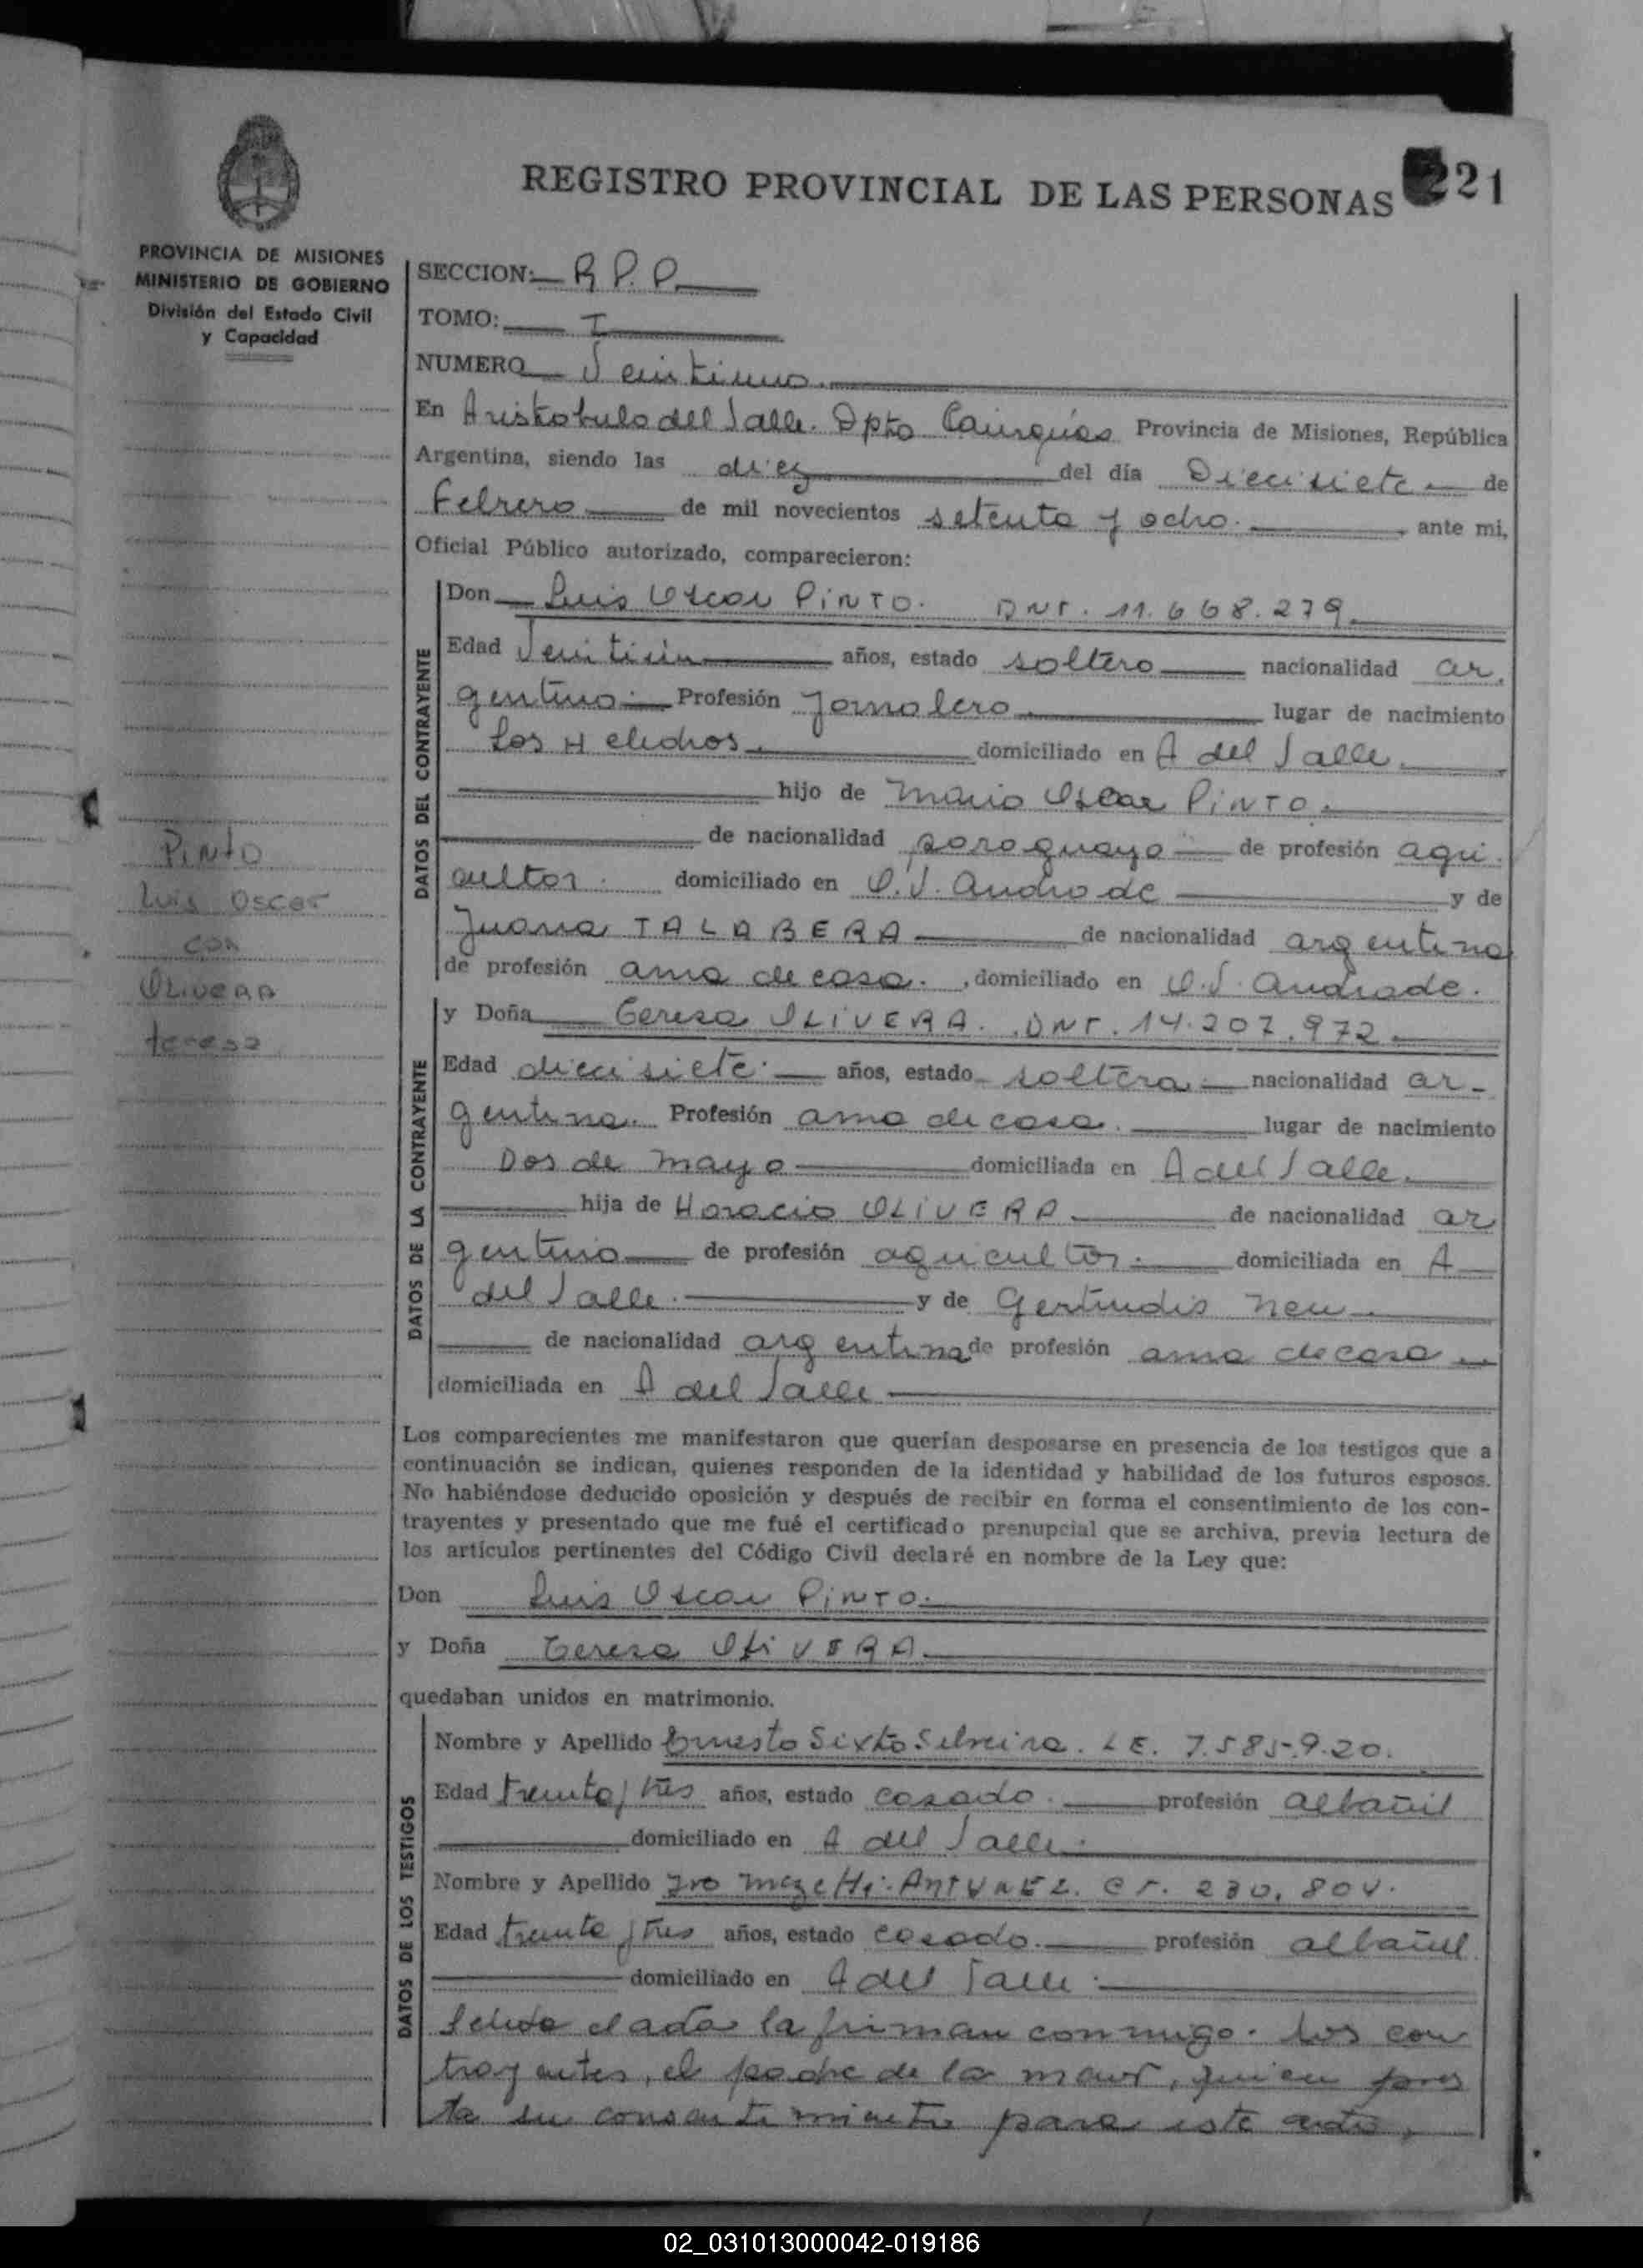 REGISTRO PROVINCIAL DE LAS PERSONAS 221
PROVINCIA DE MISIONES
MINISTERIO DE GOBIERNO
División del Estado Civil
y Capacidad
SECCION: R P. P.
TOMO: I
NUMERO Veintiuno.
En Aristobulo del Valle. Dpto Cainguás Provincia de Misiones, República
Argentina, siendo las diez del día Diecisiete de
Febrero de mil novecientos setenta y ocho. ante mi,
Oficial Público autorizado, comparecieron:
DATOS DEL CONTRAYENTE
Don Luis Oscar PINTO. DNI. 11.668.279.
Edad Veintiun años, estado soltero nacionalidad ar.
gentino. Profesión Jornalero lugar de nacimiento
Los Helechos. domiciliado en A del Valle.
hijo de Mario Oscar PINTO.
de nacionalidad paraguayo de profesión agri.
cultor. domiciliado en O.V. Andrade y de
Juana TALABERA de nacionalidad argentina
de profesión ama de casa. , domiciliado en O.V. Andrade.
PINTO
Luis Oscar
con
OLIVERA
teresa
DATOS DE LA CONTRAYENTE
y Doña Teresa OLIVERA. DNI. 14.207.972
Edad diecisiete. años, estado soltera nacionalidad ar-
gentina. Profesión ama de casa. lugar de nacimiento
Dos de Mayo domiciliada en A del Valle.
hija de Horacio OLIVERA de nacionalidad ar
gentino de profesión agricultor. domiciliada en A
del Valle. y de Gertrudis Neu.
de nacionalidad argentina de profesión ama de casa
domiciliada en A del Valle
Los comparecientes me manifestaron que querían desposarse en presencia de los testigos que a
continuación se indican, quienes responden de la identidad y habilidad de los futuros esposos.
No habiéndose deducido oposición y después de recibir en forma el consentimiento de los con-
trayentes y presentado que me fué el certificado prenupcial que se archiva, previa lectura de
los artículos pertinentes del Código Civil declaré en nombre de la Ley que:
Don Luis Oscar PINTO.
y Doña Teresa OLIVERA.
quedaban unidos en matrimonio.
DATOS DE LOS TESTIGOS
Nombre y Apellido Ernesto Sixto Silveira. LE. 7.585.920.
Edad treinta y tres años, estado casado. profesión albañil
domiciliado en A del Valle.
Nombre y Apellido ANTUNEZ. CI. 230.804.
Edad treinta y tres años, estado casado. profesión albañil
domiciliado en A del Valle.
Leida el acta la firman conmigo. Los con
trayentes, el padre de la menor, quien pres
ta su consentimiento para este acto,
02_031013000042-019186